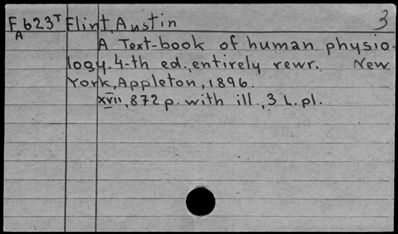 F 623T Flint Austin 3
A A Text-book of human physio-
logy. 4-th ed., entirely rewr. New
York, Appleton, 1896.
XVII, 872 p. with ill., 3 L. pl.